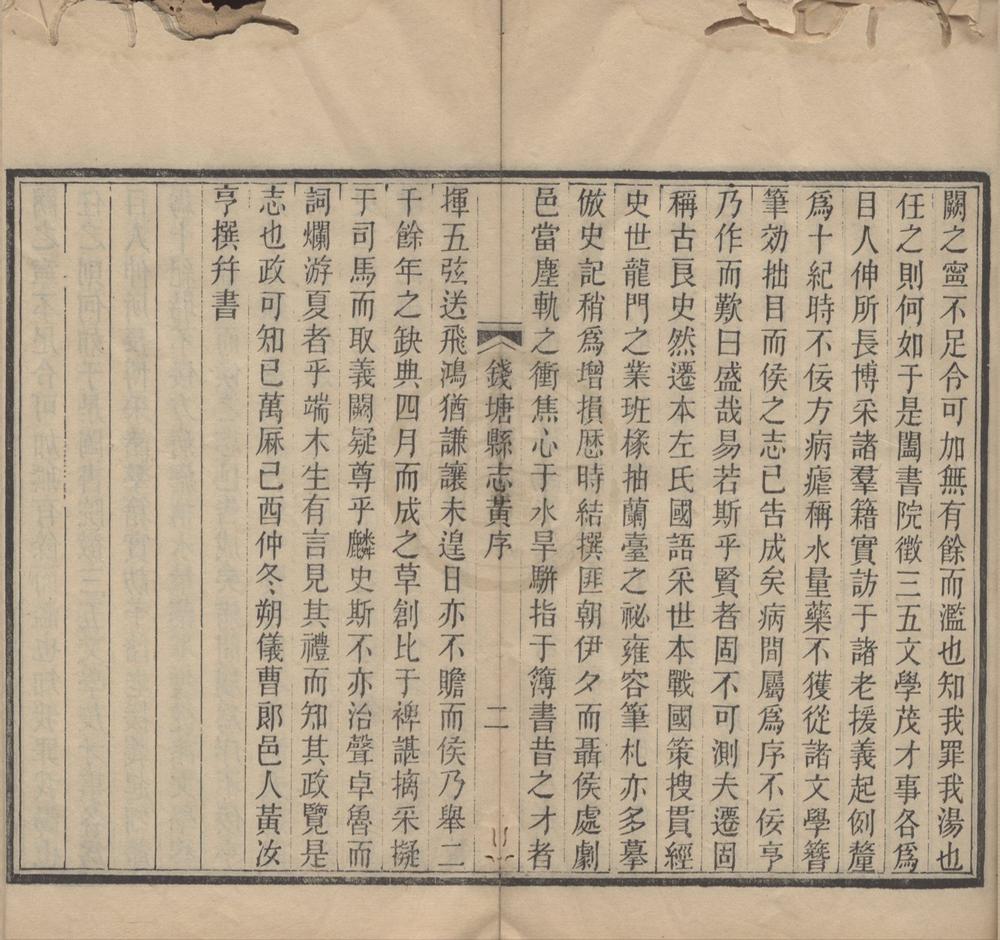 闕之寗不足合可加無有餘而濫也知我罪我湯也
任之則何如于是闔書院徵三五文學茂才事各爲
目人伸所長博采諸羣籍實訪于諸老援義起例釐
爲十紀時不佞方病瘧稱水量藥不獲從諸文學簪
筆効拙目而侯之志已告成矣病間屬爲序不佞亨
乃作而歎曰盛哉易若斯乎賢者固不可測夫遷固
稱古良史然遷本左氏國語采世本戰國策搜貫經
史世龍門之業班椽抽蘭臺之祕雍容筆札亦多摹
倣史記稍爲增損厯時結撰匪朝伊夕而聶侯處劇
邑當塵軌之衝焦心于水旱駢指于簿書昔之才者
錢塘縣志黃序 二
揮五弦送飛鴻猶謙讓未遑日亦不贍而侯乃舉二
千餘年之缺典四月而成之草創比于裨諶摛采擬
于司馬而取義闕疑尊乎麟史斯不亦治聲卓魯而
詞爛游夏者乎端木生有言見其禮而知其政覽是
志也政可知已萬厤己酉仲冬朔儀曹郞邑人黃汝
亨撰幷書